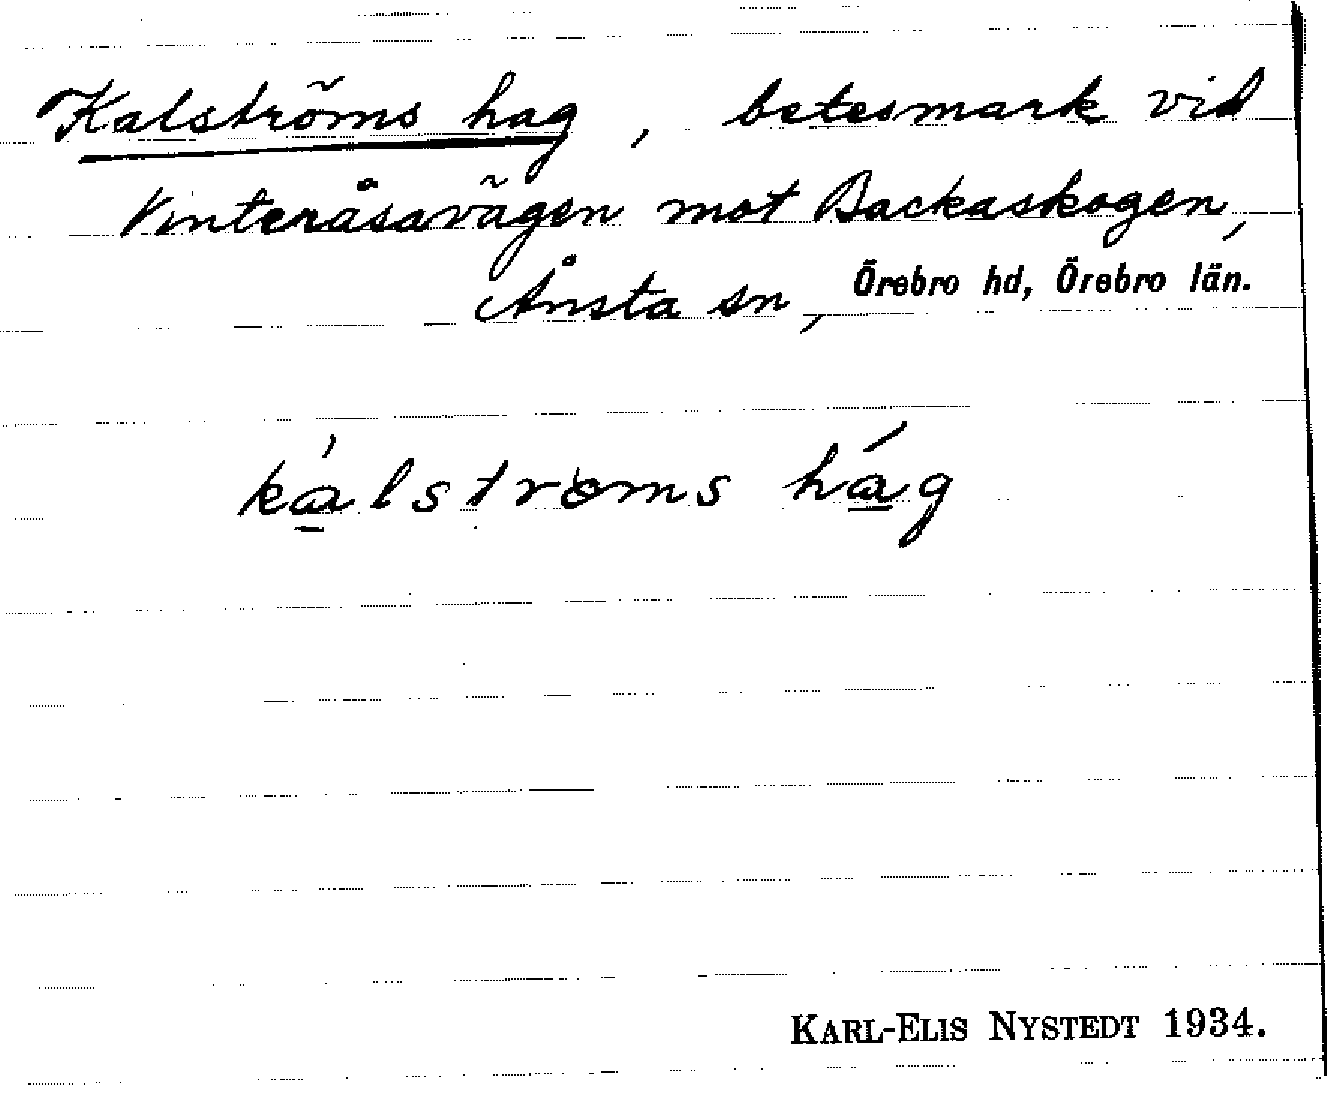 Kalströms hag, betesmark vid
Vinteråsavägen mot Backaskogen,
Ånsta sn, Örebro hd, Örebro län.
ká̱lstrɵms há̱g
KARL-ELIS NYSTEDT 1934.